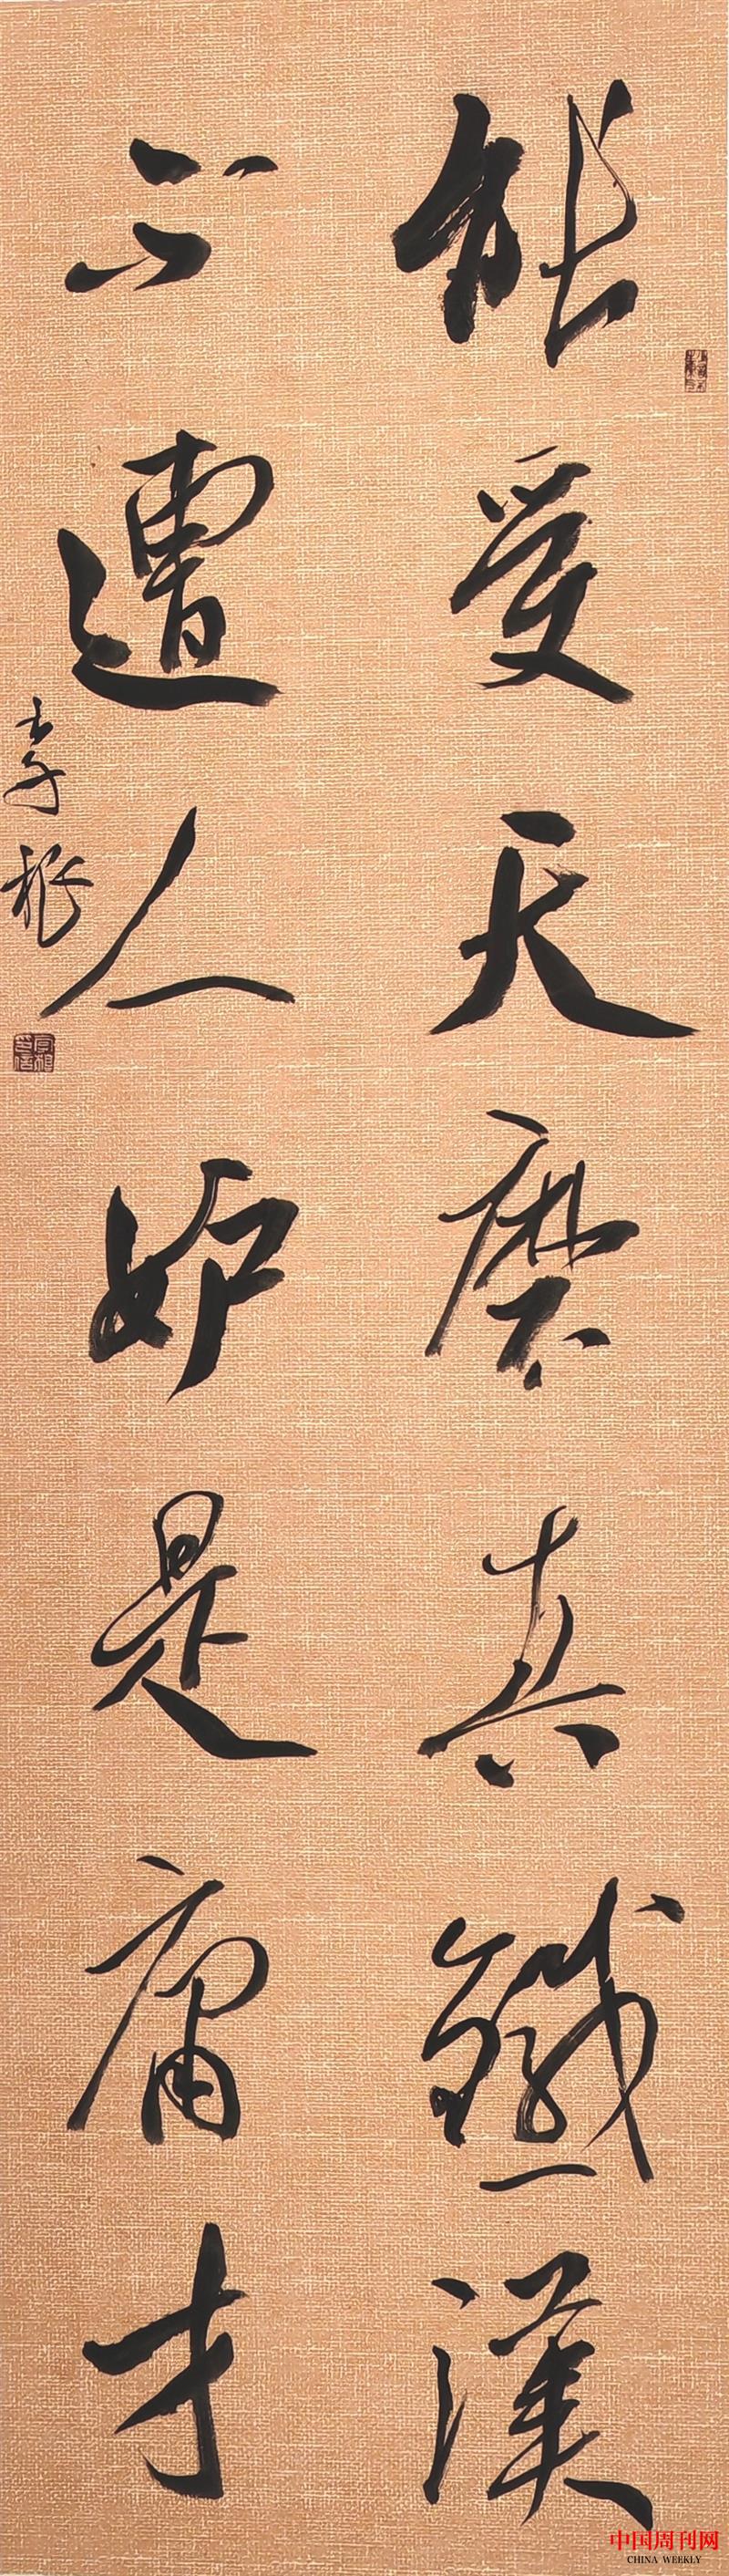 能受天磨真鐵漢
不遭人妒是庸才
中国周刊网
CHINA WEEKLY